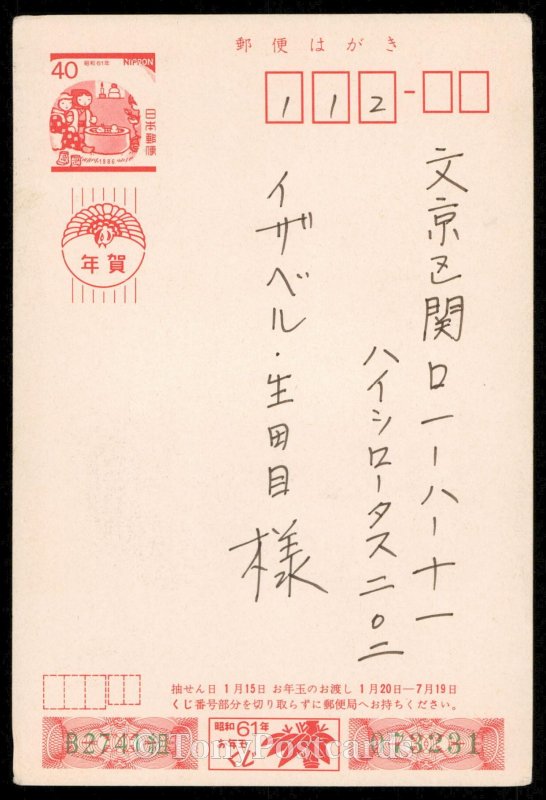 郵便はがき
40 昭和61年 NIPPON
日本郵便
1986
年賀
112-
文京区関口一ー八ー十一
ハイシロータス二〇二
イザベル・生田目様
抽せん日 1月15日 お年玉のお渡し 1月20日—7月19日
くじ番号部分を切り取らずに郵便局へお持ちください。
昭和61年
お年玉
073231
©Tom Postcards